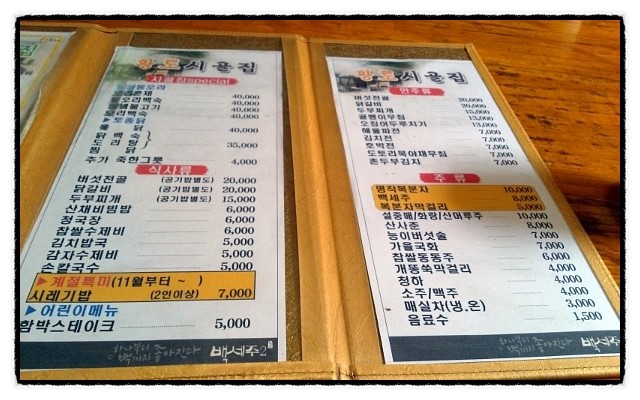 황토시골집
시골집special
오리훈제 40,000
오리백숙 40,000
오리불고기 40,000
오리백숙 40,000
▶토종닭
닭백숙
도리탕 35,000
찜닭
추가 죽한그릇 4,000
식사류
버섯전골 (공기밥별도) 20,000
닭갈비 (공기밥별도) 20,000
두부찌개 (공기밥별도) 15,000
산채비빔밥 6,000
청국장 6,000
찹쌀수제비 6,000
김치밥국 5,000
감자수제비 5,000
손칼국수 5,000
▶계절특미(11월부터 ~ )
시레기밥 (2인이상) 7,000
▶어린이메뉴
함박스테이크 5,000
백세주
황토시골집
안주류
버섯전골 20,000
닭갈비 20,000
두부찌개 15,000
골뱅이무침 15,000
오징어두루치기 13,000
해물파전 7,000
김치전 7,000
호박전 7,000
도토리묵야채무침 7,000
촌두부김치 7,000
주류
명작복분자 10,000
백세주 8,000
복분자막걸리 5,000
설중매/화랑/산머루주 10,000
산사춘 8,000
능이버섯술 7,000
가을국화 7,000
찹쌀동동주 6,000
개똥쑥막걸리 4,000
청하 4,000
소주/맥주 4,000
매실차(냉.온) 3,000
음료수 1,500
백세주